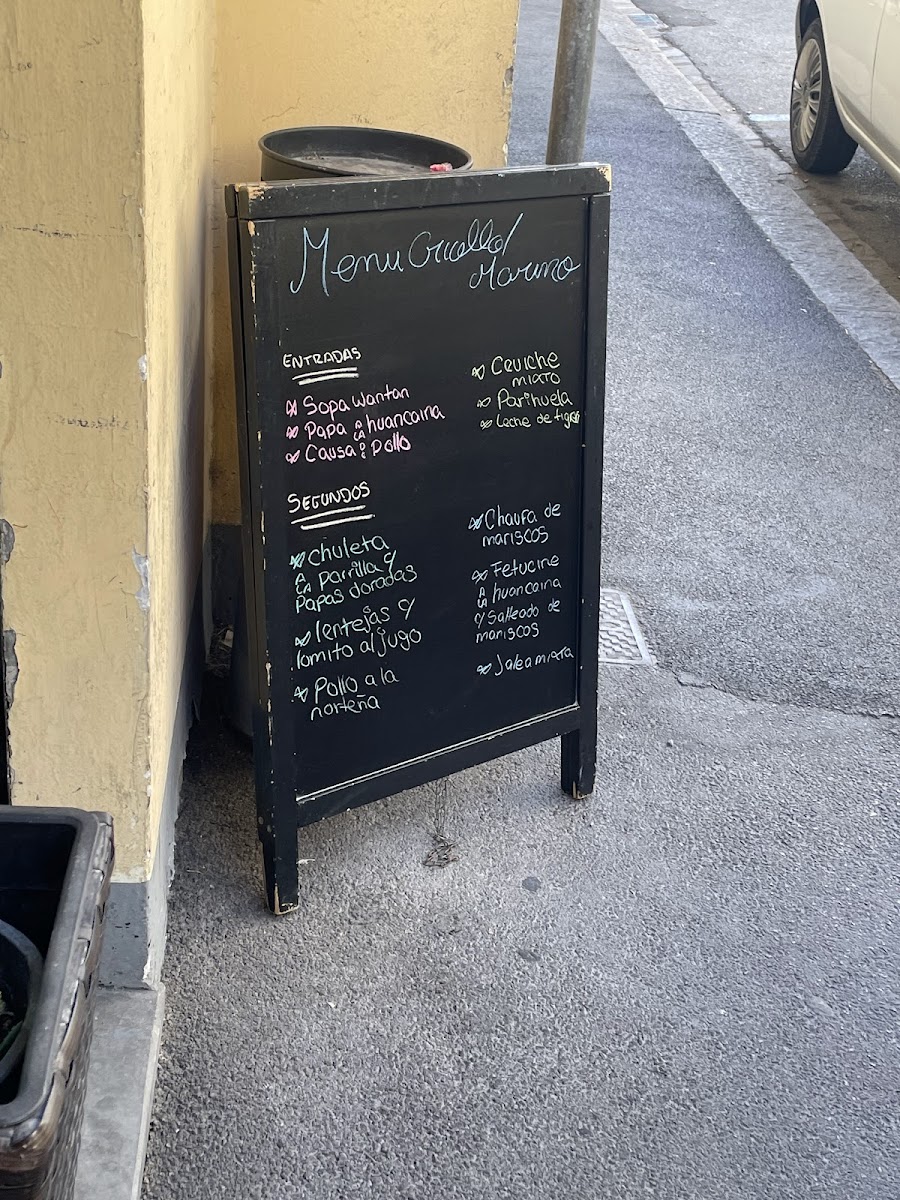 Menu Criollo/
Marino
ENTRADAS
Sopa wantan
Papa A LA huancaina
Causa DE pollo
Ceviche
mixto
Parihuela
Leche de tigre
SEGUNDOS
chuleta
A LA parrilla y
papas doradas
lentejas y
lomito al jugo
Pollo a la
norteña
Chaufa de
mariscos
Fetucine
A LA huancaina
y Salteado de
mariscos
Jalea mixta